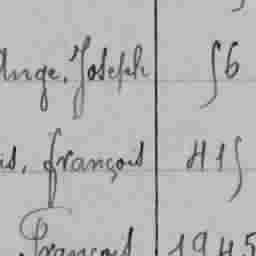 Ange, Joseph 56
is, françois 415
François 1945